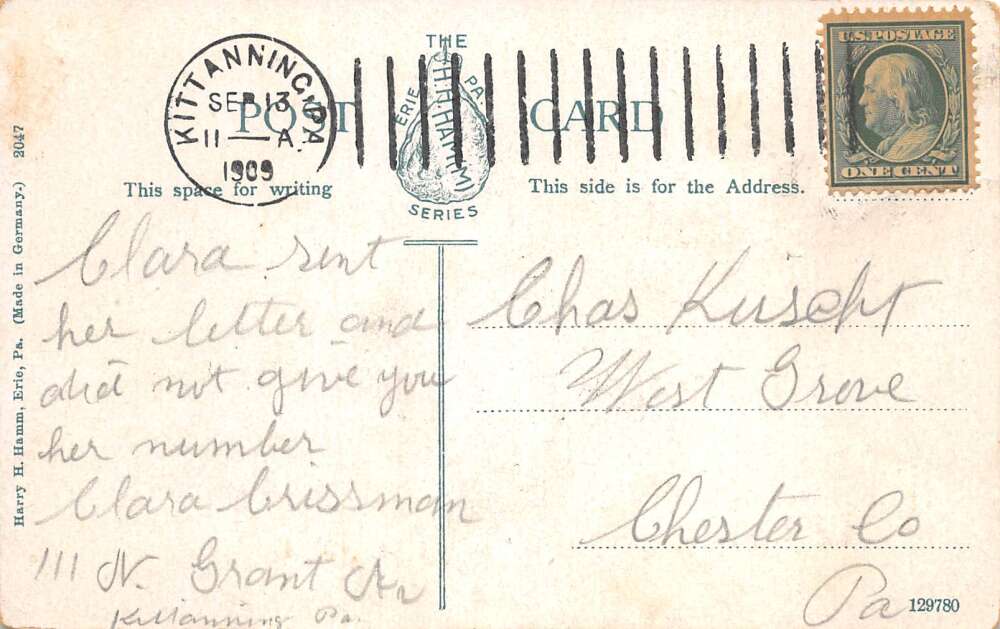 KITTANNING, PA
SEP 13
11 — A.
1909
POST CARD
THE
H.H. HAMM
ERIE PA.
SERIES
U.S. POSTAGE
ONE CENT
This space for writing
This side is for the Address.
Harry H. Hamm, Erie, Pa. (Made in Germany.) 2047
Clara sent
her letter and
did not give you
her number
Clara Crissman
111 N. Grant Av
Kittanning Pa.
Chas
West Grove
Chester Co
Pa
129780